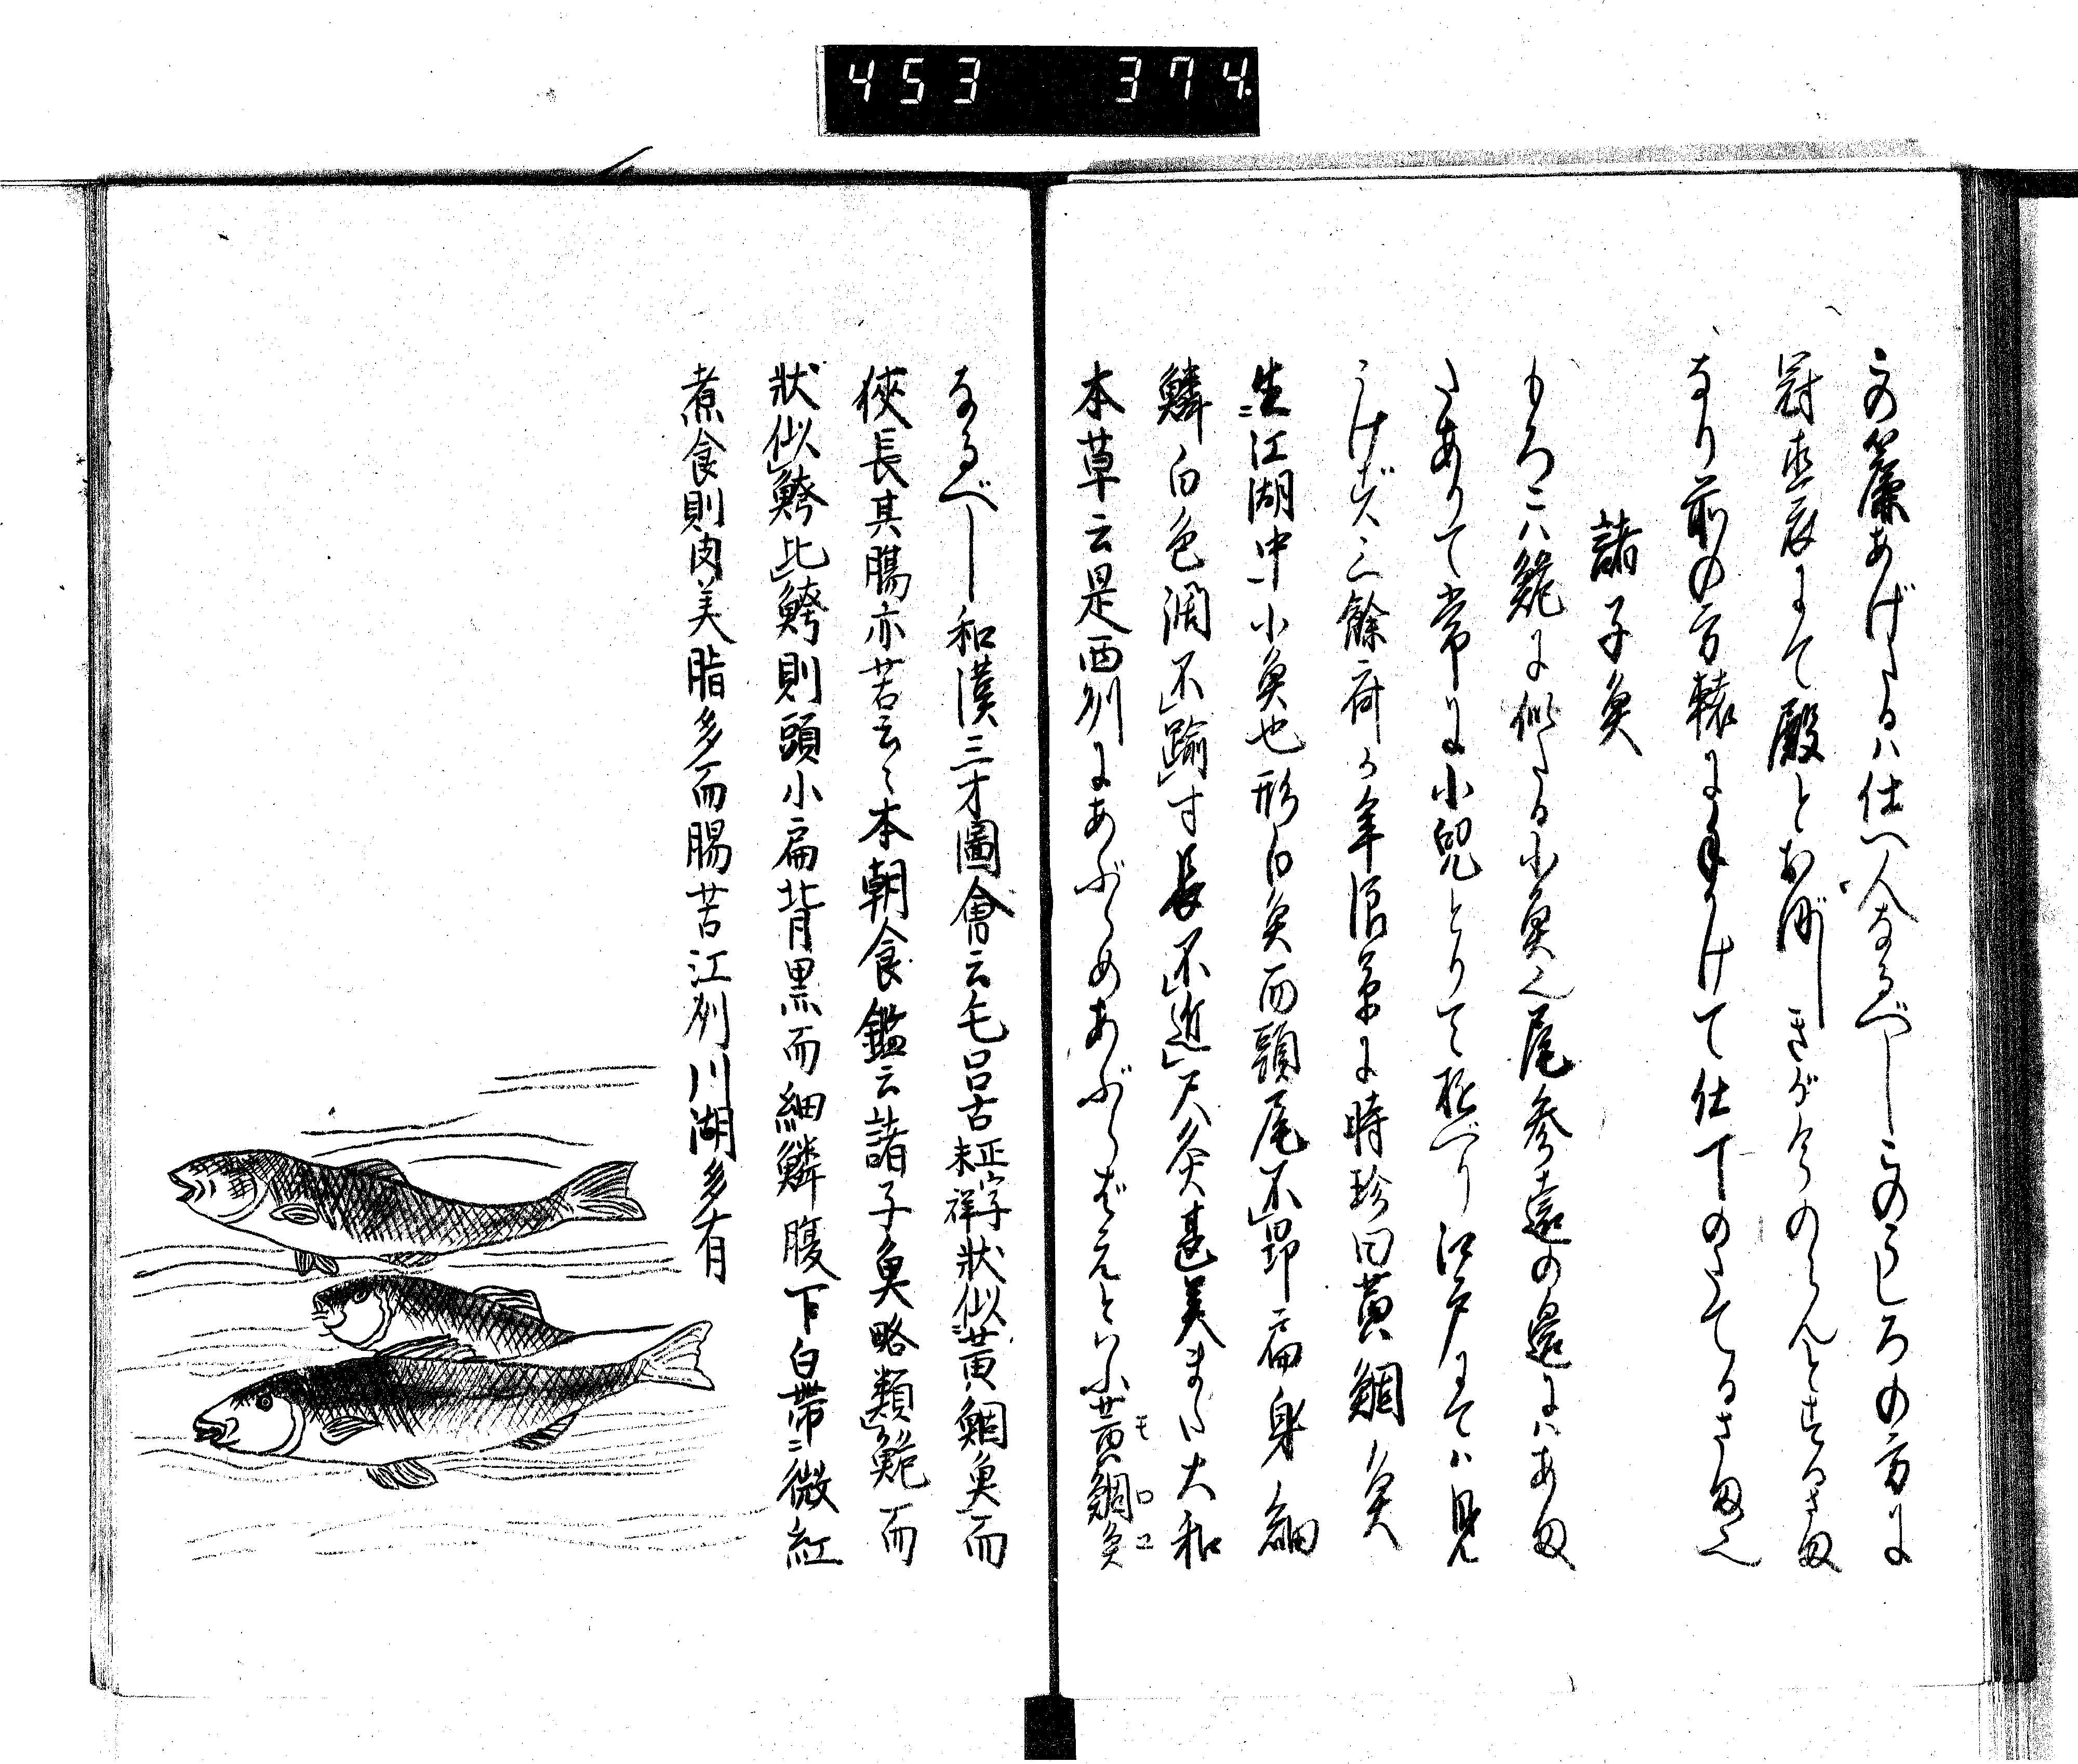 453 374.
の簾あげたるハ仕へ人なるべしこのうしろの方に
冠直衣にて殿とおぼしきが今のらんとするさま
なり前の方轅に手かけて仕丁のたてるさま也
諸子魚
もろこハ鮠に似たる小魚也尾参遠の邊にハあま
たありて常に小兒とりて遊べり江戸にてハ見
うけず三餘府
時珍曰黄鯝魚
生江湖中小魚也形白魚而頭尾不昂扁身細
鱗白色濶不踰寸長不近尺炙甚美また大和
本草云是西州にあぶらめあぶらばえといふ黄鯝魚
モロコ
なるべし和漢三才圖會云毛呂古正字未詳狀似黄鯝魚而
狹長其膓亦苦云々本朝食鑑云諸子魚略類鮠而
狀似鮬比鮬則頭小扁背黒而細鱗腹下白帯微紅
煮食則肉美脂多而腸苦江州川湖多有